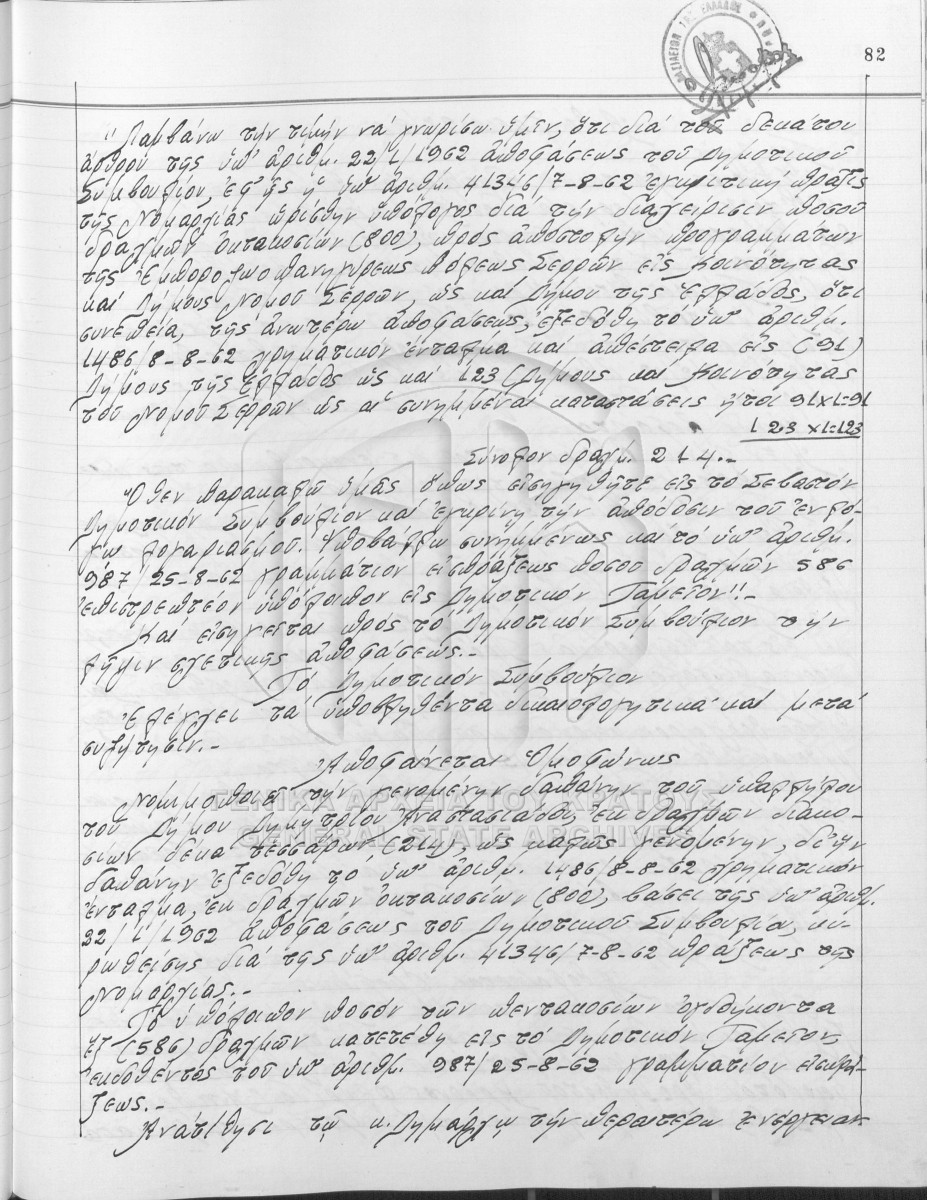 82
"Λαμβάνω τήν τιμήν νά γνωρίσω ὑμῖν, ὅτι διά τοῦ δεκάτου
ἄρθρου τῆς ὑπ' ἀριθμ. 22/1/1962 ἀποφάσεως τοῦ Δημοτικοῦ
Συμβουλίου, ἐφ' ἧς ἡ ὑπ' ἀριθμ. 41346/7-8-62 ἐγκριτική πρᾶξις
τῆς Νομαρχίας ὡρίσθην ὑπόλογος διά τήν διαχείρισιν ποσοῦ
δραχμῶν ὀκτακοσίων (800), πρός ἀποστολήν προγραμμάτων
τῆς Ἐμποροζωοπανηγύρεως πόλεως Σερρῶν εἰς Κοινότητας
καί Δήμους Νομοῦ Σερρῶν, ὡς καί Δήμου τῆς Ἑλλάδος, ὅτι
συνεπείᾳ, τῆς ἀνωτέρω ἀποφάσεως, ἐξεδόθη τό ὑπ' ἀριθμ.
1486/8-8-62 χρηματικόν ἔνταλμα καί ἀπέστειλα εἰς (91)
Δήμους τῆς Ἑλλάδος ὡς καί 123 (Δήμους καί Κοινότητας
τοῦ Νομοῦ Σερρῶν ὡς αἱ συνημμέναι καταστάσεις ἤτοι 91x1=91
123x1=123
Σύνολον δραχμ. 214.-
Ὅθεν παρακαλῶ ὑμᾶς ὅπως εἰσηγηθῆτε εἰς τό Σεβαστόν
Δημοτικόν Συμβούλιον καί ἐγκρίνῃ τήν ἀπόδοσιν τοῦ ἐν λό-
γῳ λογαριασμοῦ. Ὑποβάλλω συνημμένως καί τό ὑπ' ἀριθμ.
987/25-8-62 γραμμάτιον εἰσπράξεως ποσοῦ δραχμῶν 586
ἐπιστρεπτέον ὑπόλοιπον εἰς Δημοτικόν Ταμεῖον".-
Καί εἰσηγεῖται πρός τό Δημοτικόν Συμβούλιον τήν
λῆψιν σχετικῆς ἀποφάσεως.-
Τό Δημοτικόν Συμβούλιον
Ἐλέγχει τά ὑποβληθέντα δικαιολογητικά καί μετά
συζήτησιν.-
Ἀποφαίνεται Ὁμοφώνως
Νομιμοποιεῖ τήν γενομένην δαπάνην τοῦ ὑπαλλήλου
τοῦ Δήμου Δημητρίου Ἀναστασιάδου, ἐκ δραχμῶν διακο-
σίων δέκα τεσσάρων (214), ὡς καλῶς γενομένην, δι' ἥν
δαπάνην ἐξεδόθη τό ὑπ' ἀριθμ. 1486/8-8-62 χρηματικόν
ἔνταλμα, ἐκ δραχμῶν ὀκτακοσίων (800), βάσει τῆς ὑπ' ἀριθμ.
22/1/1962 ἀποφάσεως τοῦ Δημοτικοῦ Συμβουλίου, κυ-
ρωθείσης διά τῆς ὑπ' ἀριθμ. 41346/7-8-62 πράξεως τῆς
Νομαρχίας.-
Τό ὑπόλοιπον ποσόν τῶν πεντακοσίων ὀγδοήκοντα
ἕξ (586) δραχμῶν κατετέθη εἰς τό Δημοτικόν Ταμεῖον,
ἐκδοθέντος τοῦ ὑπ' ἀριθμ. 987/25-8-62 γραμμάτιον εἰσπρά-
ξεως.-
Ἀνατίθησι τῷ κ. Δημάρχῳ τήν περαιτέρω ἐνέργειαν
ΓΕΝΙΚΑ ΑΡΧΕΙΑ ΤΟΥ ΚΡΑΤΟΥΣ
GENERAL STATE ARCHIVES